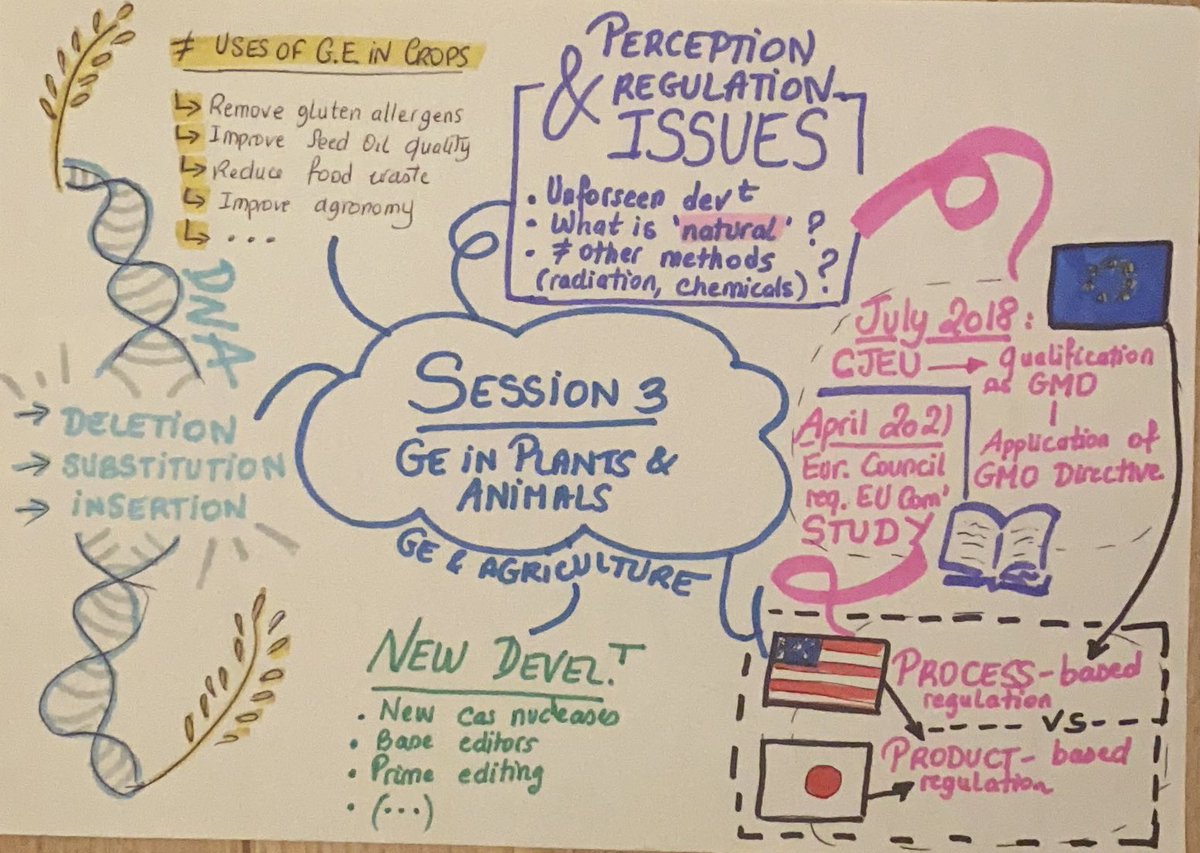 ≠ USES OF G.E IN CROPS
↳ Remove gluten allergens
↳ Improve Seed Oil quality
↳ Reduce food waste
↳ Improve agronomy
↳ ...
PERCEPTION
& REGULATION
ISSUES
• Unforseen devt
• What is 'natural' ?
• ≠ other methods
(radiation, chemicals) ?
DNA
→ DELETION
→ SUBSTITUTION
→ INSERTION
SESSION 3
GE IN PLANTS &
ANIMALS
GE & AGRICULTURE
July 2018:
CJEU → qualification
as GMO
Application of
GMO Directive
April 2021
Eur. Council
req. EU Com'
STUDY
NEW DEVEL.T
• New cas nucleases
• Base editors
• Prime editing
• (...)
PROCESS-based
regulation
VS
PRODUCT-based
regulation